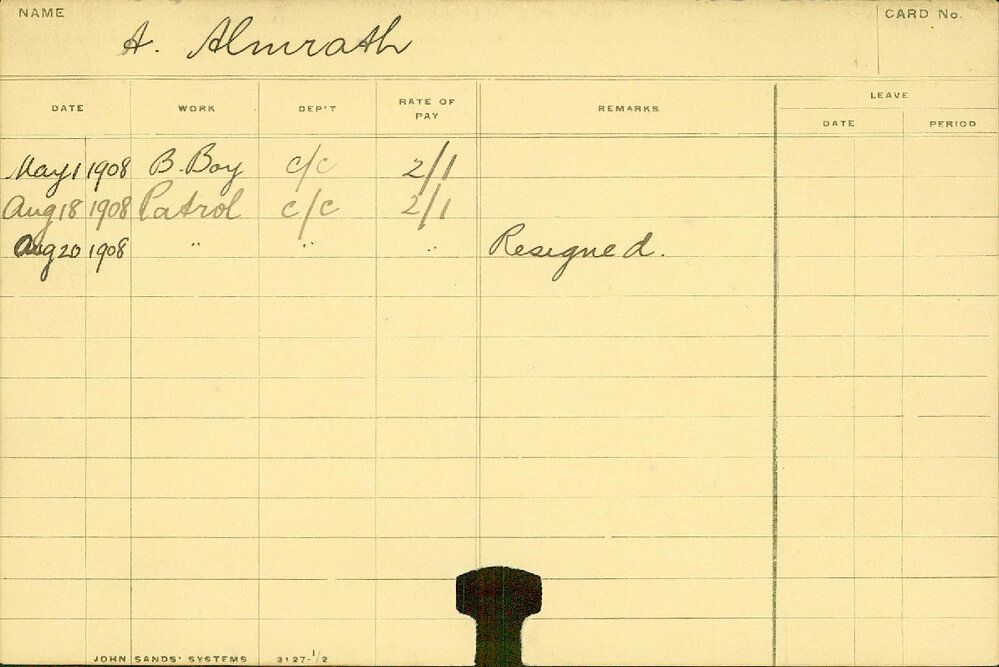 NAME
A. Almrath
CARD No.
DATE WORK DEP'T RATE OF PAY REMARKS LEAVE
DATE PERIOD
May 1 1908 B. Boy c/c 2/1
Aug 18 1908 Patrol c/c 2/1
Aug 20 1908 " " " Resigned.
JOHN SANDS' SYSTEMS 3127-1/2